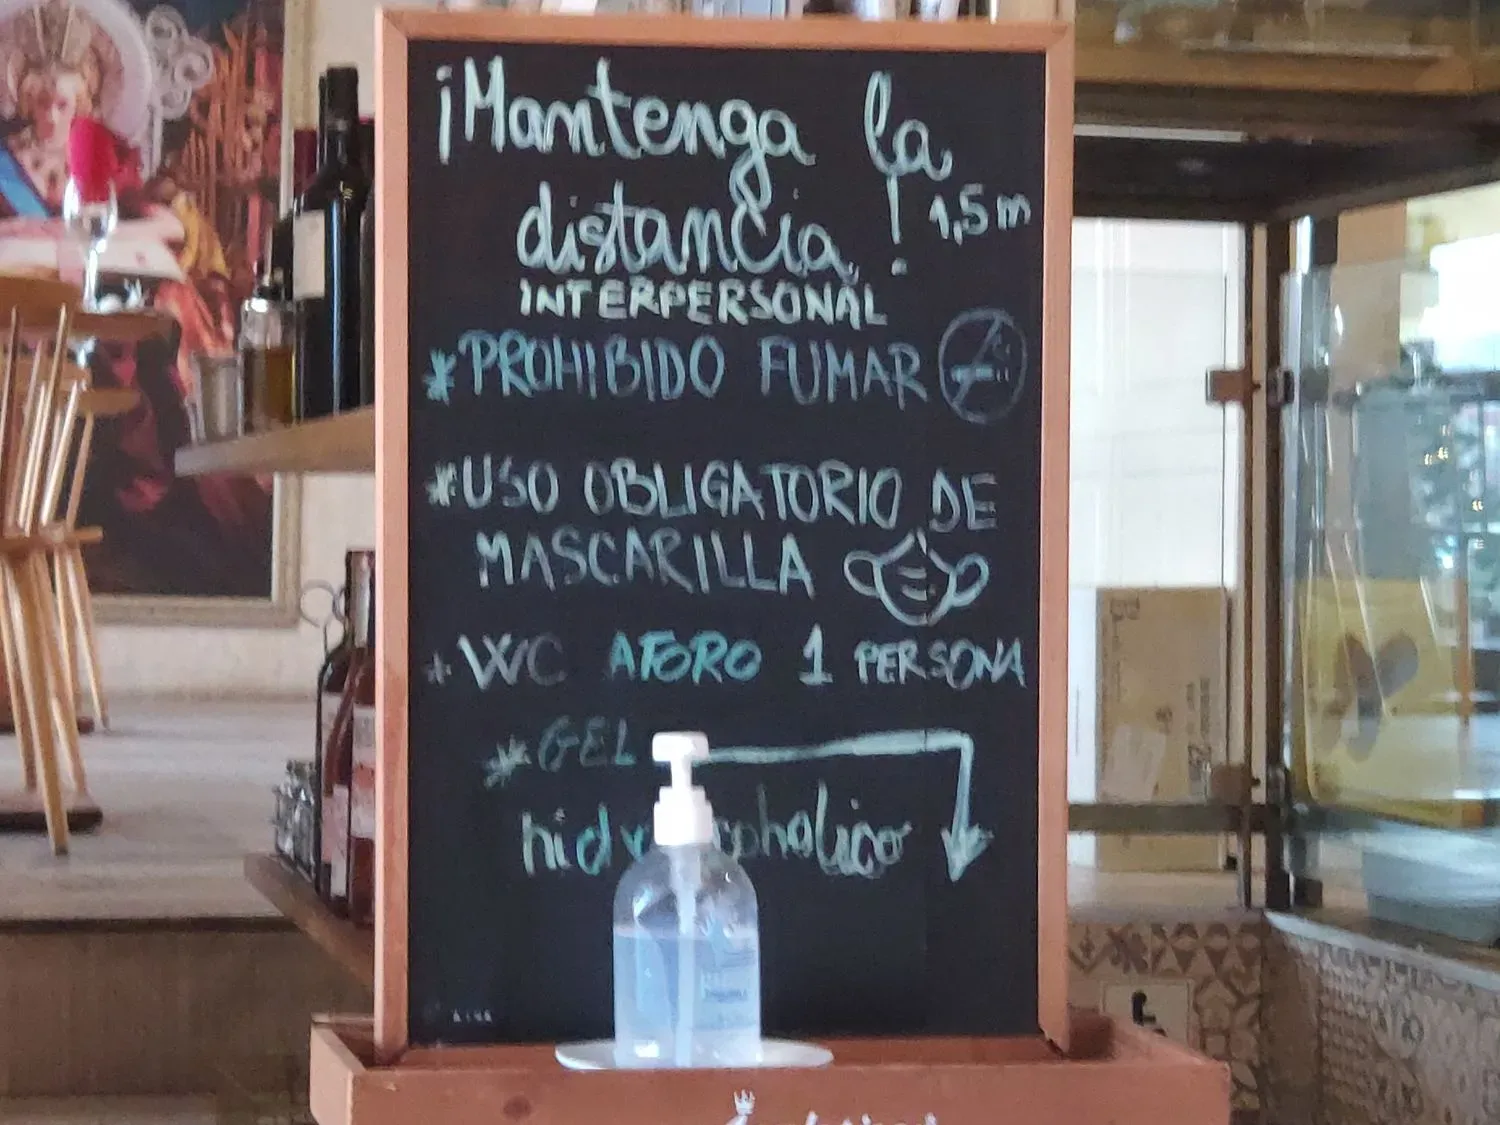 ¡Mantenga la
distancia! 1,5m
INTERPERSONAL
*PROHIBIDO FUMAR
*USO OBLIGATORIO DE
MASCARILLA
* WC AFORO 1 PERSONA
*GEL